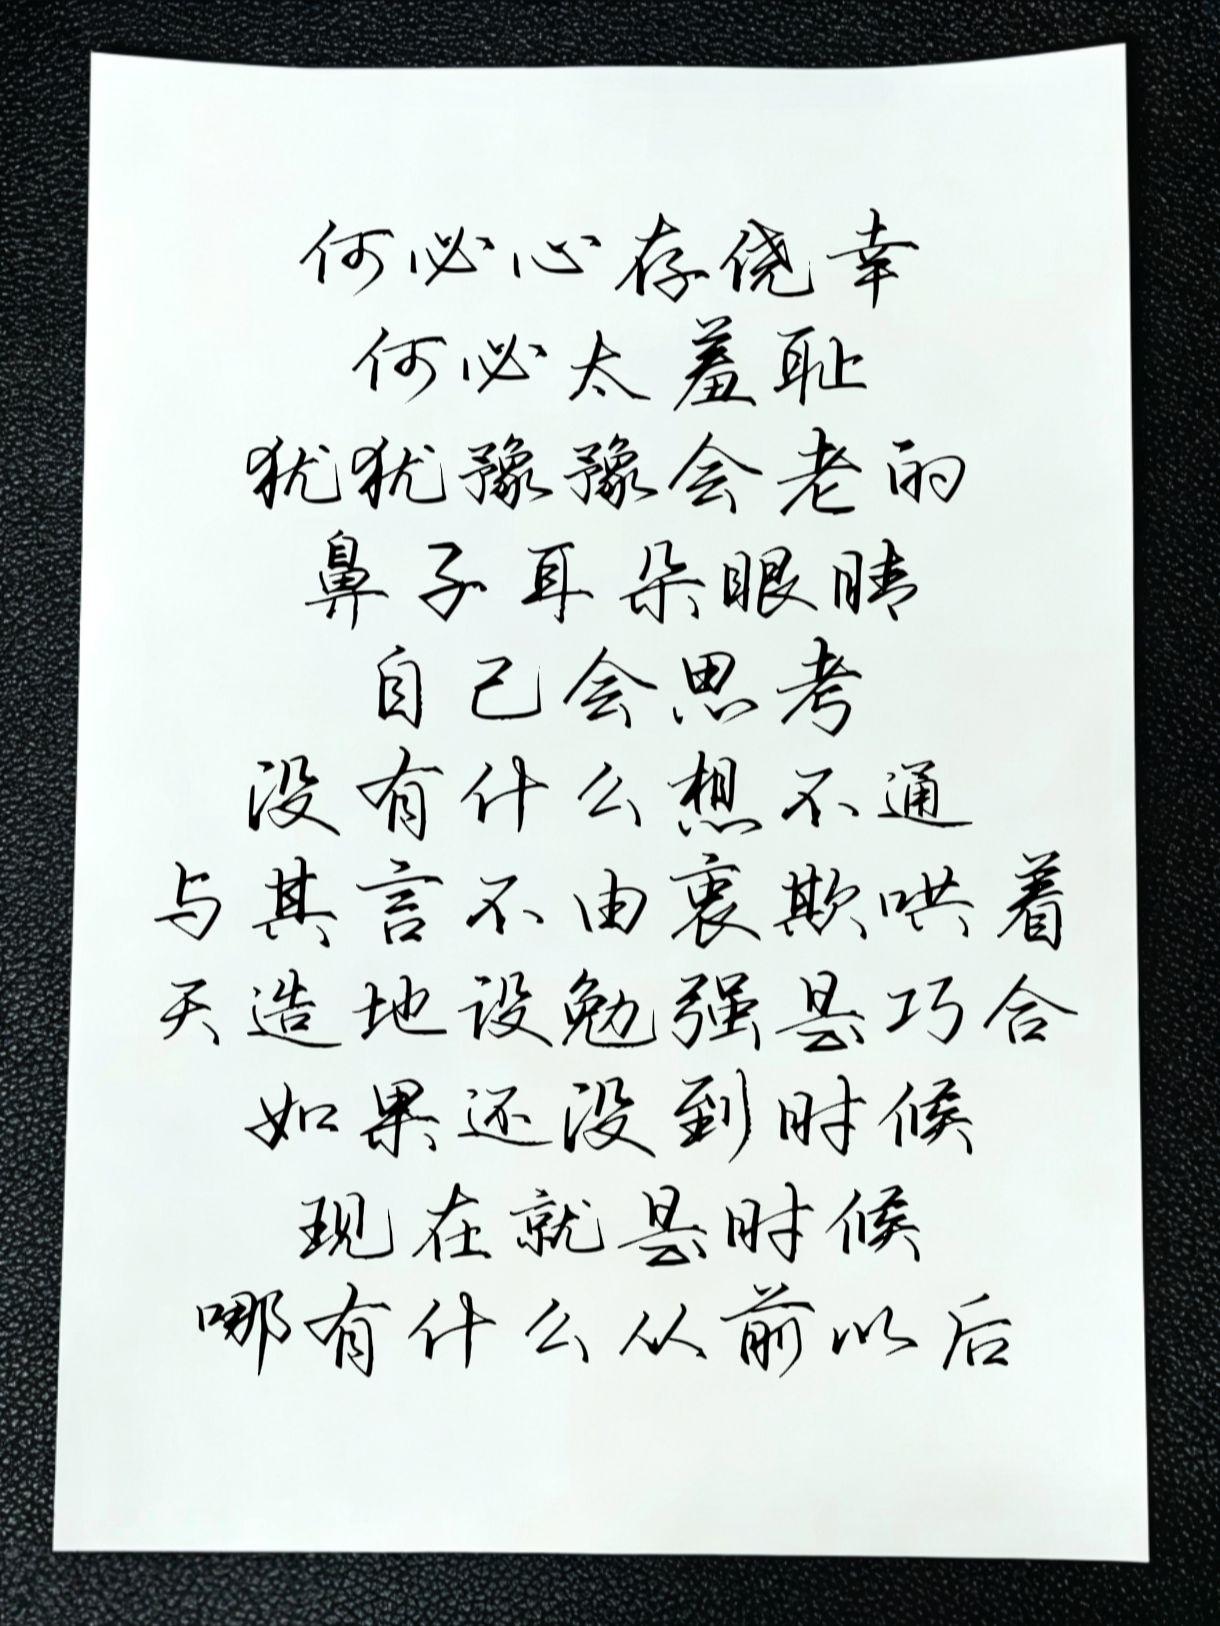 何必心存侥幸
何必太羞耻
犹犹豫豫会老的
鼻子耳朵眼睛
自己会思考
没有什么想不通
与其言不由衷欺哄着
天造地设勉强是巧合
如果还没到时候
现在就是时候
哪有什么从前以后